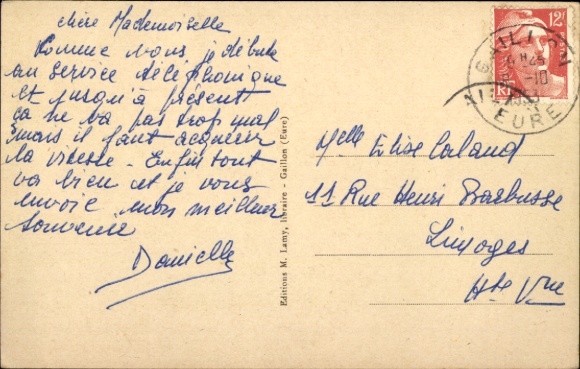 chère Mademoiselle
Comme vous je débute
au service téléphonique
et jusqu'à présent
ça ne va pas trop mal
mais il faut acquérir
la vitesse - Enfin tout
va bien et je vous
envoie mon meilleur
souvenir
Danielle
Editions M. Lamy, libraire - Gaillon (Eure)
12F
RF
GAILLON
EURE
Melle Elise
11 Rue Henri Barbusse
Limoges
Hte Vne